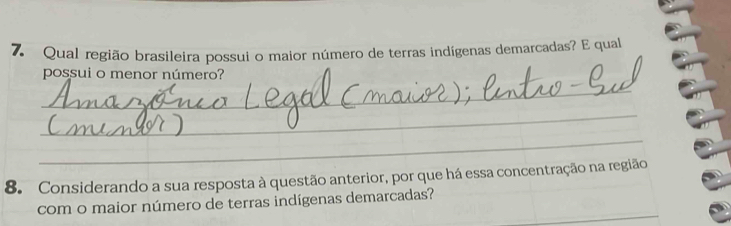 7. Qual região brasileira possui o maior número de terras indígenas demarcadas? E qual
possui o menor número?
Amazônica Legal (maior); Centro-Sul
(menor)
8. Considerando a sua resposta à questão anterior, por que há essa concentração na região
com o maior número de terras indígenas demarcadas?